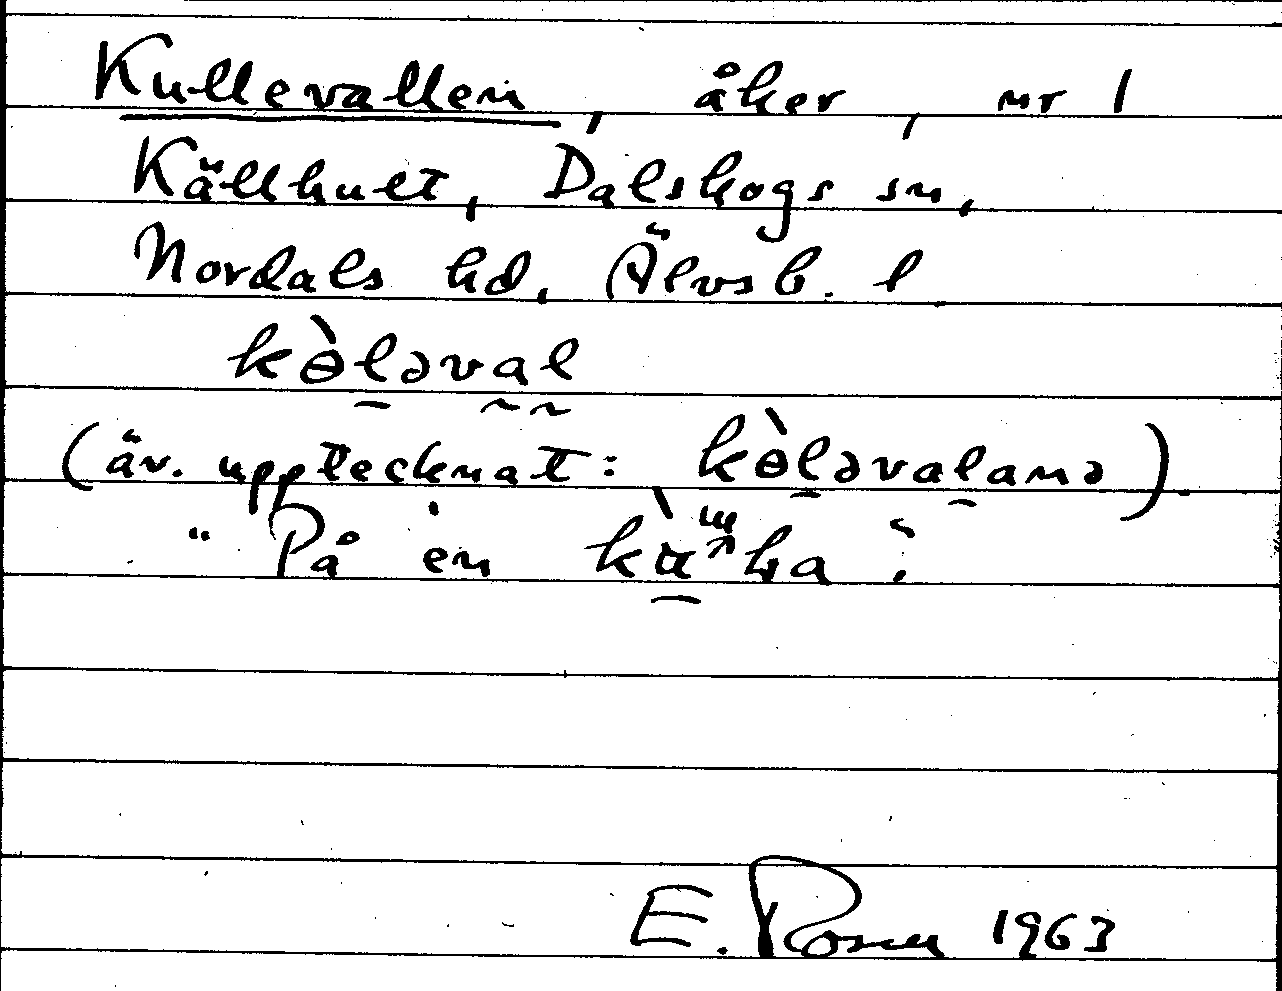 Kullevallen, åker, nr 1
Källhult, Dalskogs sn,
Nordals hd, Älvsb. l.
kɵ̀ləval
(äv. upptecknat: kɵ̀ləvalana).
"På en
E. Rosen 1963